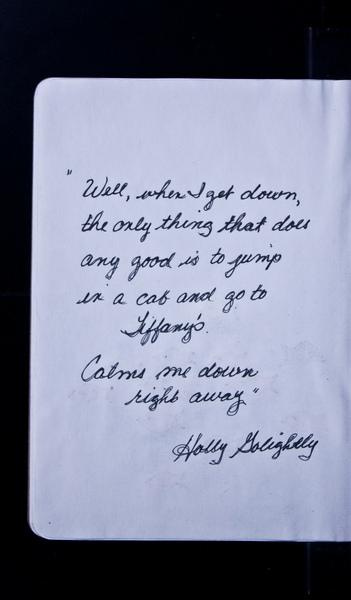 "Well, when I get down,
the only thing that does
any good is to jump
in a cab and go to
Tiffany's.
Calms me down
right away"
Holly Golightly